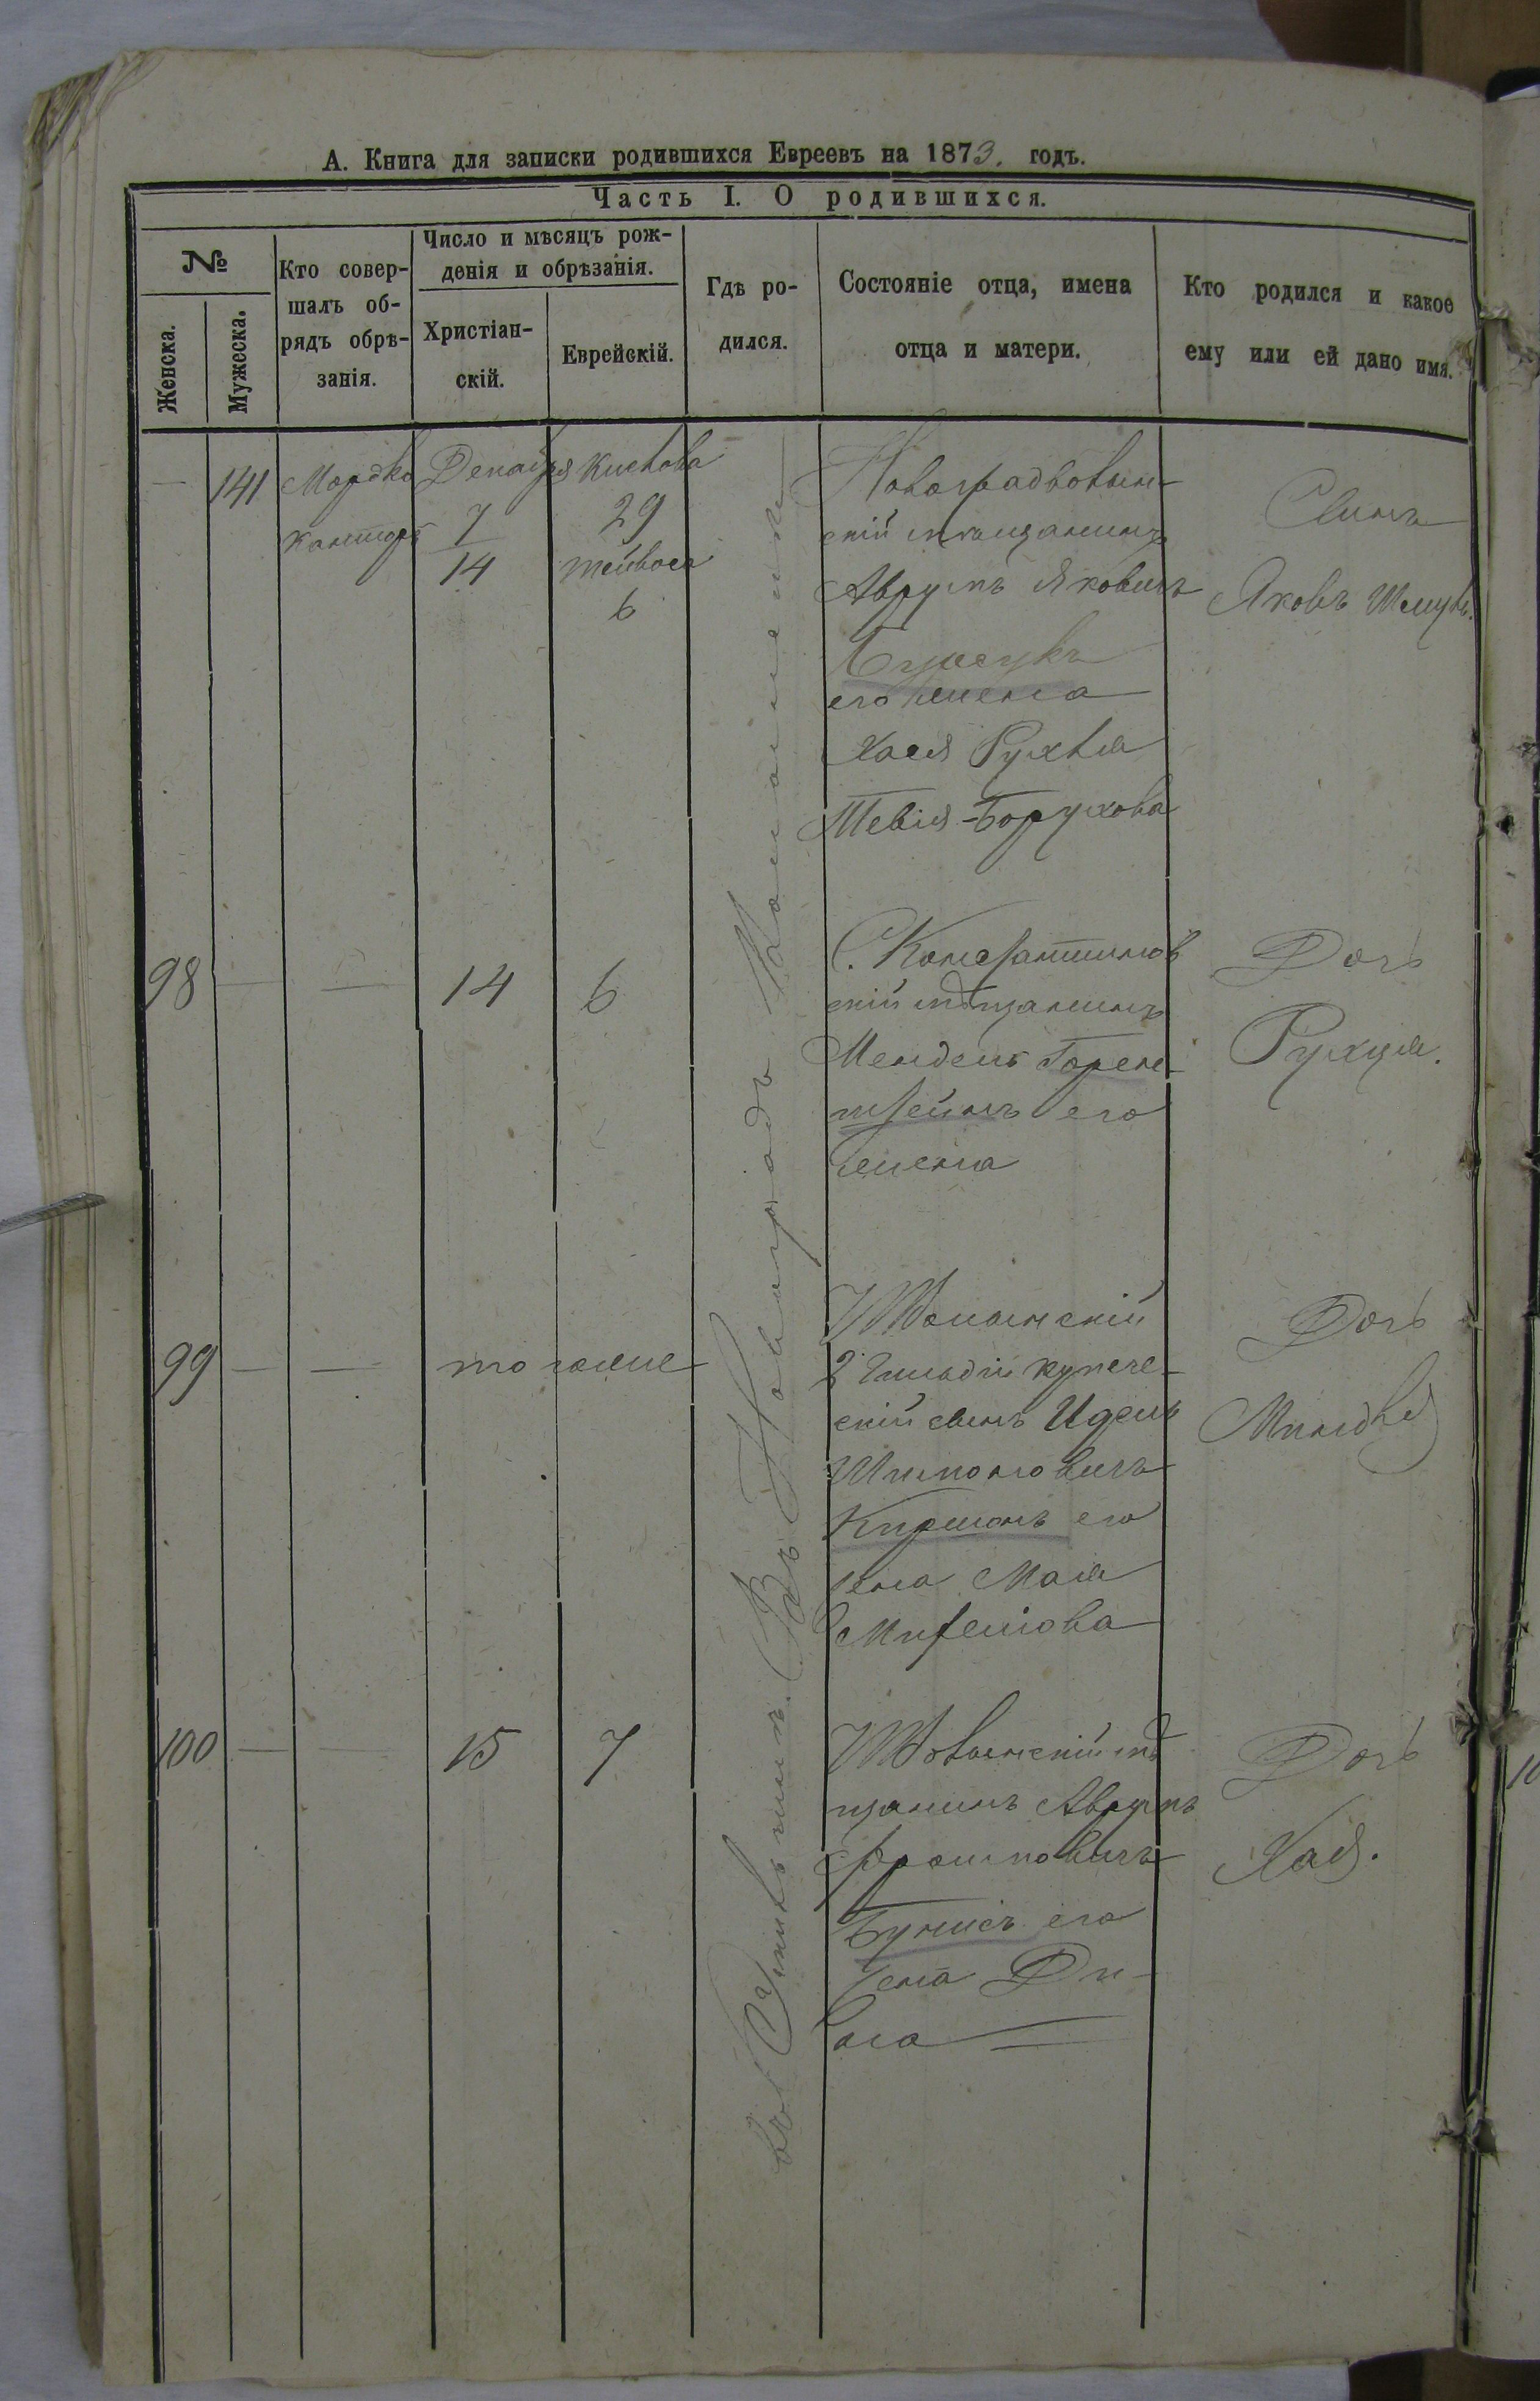 А. Книга для записки родившихся Евреевъ на 1873. годъ.
Часть I. О родившихся.
№
Женска.
Мужеска.
Кто совер-
шалъ об-
рядъ обрѣ-
занія.
Число и мѣсяцъ рож-
денія и обрѣзанія.
Христіан-
скій.
Еврейскій.
Гдѣ ро-
дился.
Состояніе отца, имена
отца и матери.
Кто родился и какое
ему или ей дано имя.
— 141
Мордко
Канторъ
Декабря
7
14
Кислова
29
Тейвеса
6
Новоградволын-
скій мѣщанинъ
Аврумъ Яковичъ
его жена
Хася Рухля
Тевія-Борухова
Сынъ
Яковъ Шмуль.
98 — — 14 6
С. Константинов
скій мѣщанинъ
Мендель Горен-
штейнъ его
жена
Дочь
Рухля.
99 — — тоже
НВолынскій
2 гильдіи купече-
скій сынъ Идель
Шимоновичъ
Киршонъ его
жена Маля
Дочь
Миндля
100 — — 15 7
НВолынскій мѣ
щанинъ Аврумъ
Фроимовичъ
его
жена Ди-
Дочь
Хая.
Въ Новоградъ